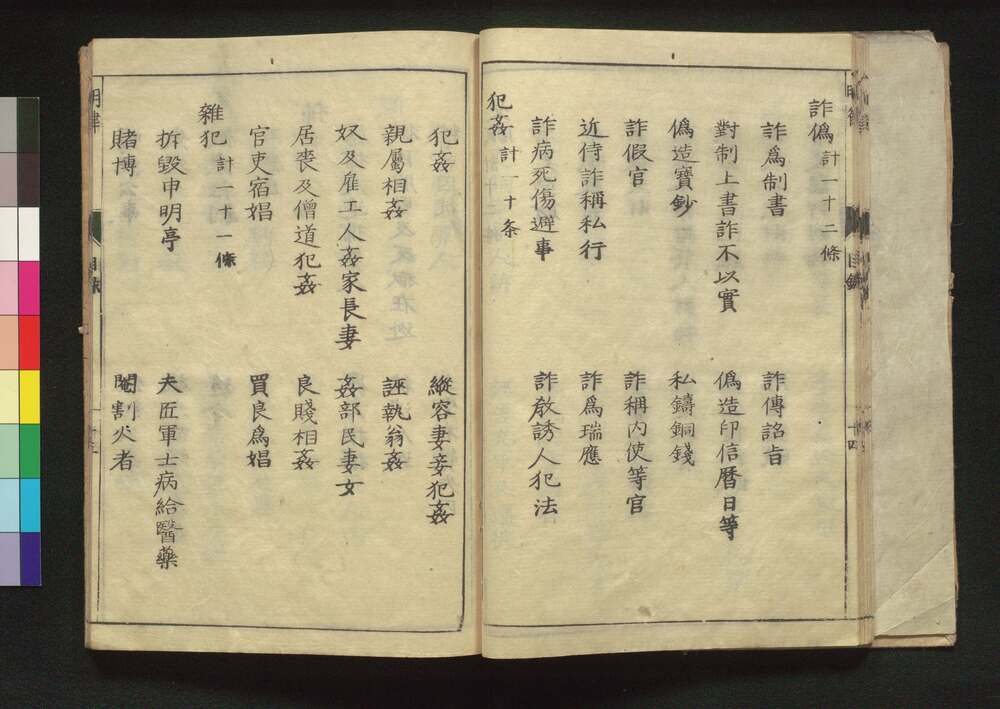 詐偽 計一十二條
詐為制書 詐傳詔旨
對制上書詐不以實 偽造印信曆日等
偽造寶鈔 私鑄銅錢
詐假官 詐稱內使等官
近侍詐稱私行 詐為瑞應
詐病死傷避事 詐教誘人犯法
犯姦 計一十条
犯姦 縱容妻妾犯姦
親屬相姦 誣執翁姦
奴及雇工人姦家長妻 姦部民妻女
居喪及僧道犯姦 良賤相姦
官吏宿娼 買良為娼
雜犯 計一十一條
拆毀申明亭 夫匠軍士病給醫藥
賭博 閹割火者
明律
目録